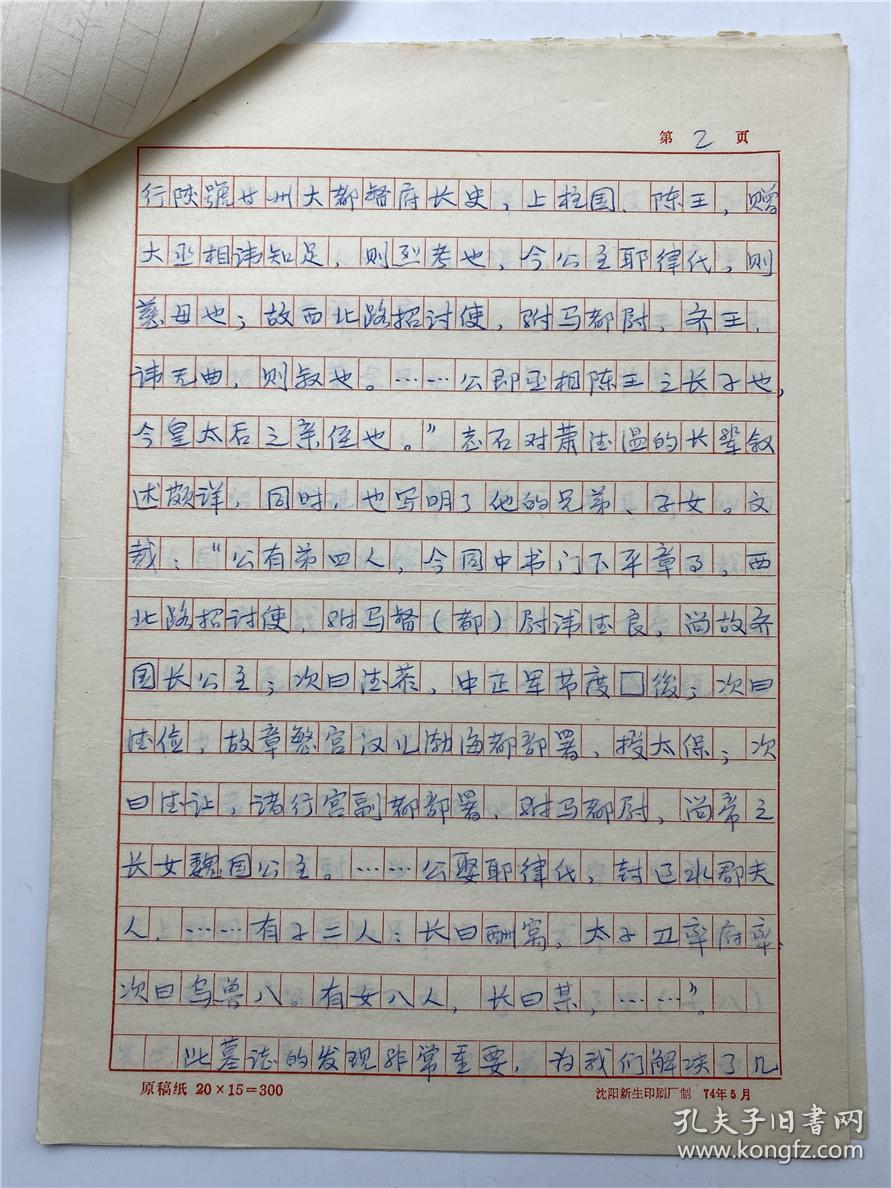 第 2 页
行陕虢廿州大都督府长史，上柱国、陈王，赠
大丞相讳知足，则烈考也，今公主耶律代，则
慈母也；故西北路招讨使，附马都尉，齐王，
讳无曲，则叔也。……公即丞相陈王之长子也，
今皇太后之亲侄也。”志石对萧德温的长辈叙
述颇详，同时，也写明了他的兄弟、子女。文
载：“公有弟四人，今同中书门下平章事，西
北路招讨使，附马督（都）尉讳德良，尚故齐
国长公主；次曰德恭、中正军节度□後；次曰
德俭，故章愍宫汉儿渤海都部署，授太保；次
曰德让，诸行宫副都部署，附马都尉，尚帝之
长女魏国公主。……公娶耶律代，封巴水郡夫
人，……有子二人：长曰酬窝，太子卫率府率，
次曰乌兽八。有女八人，长曰某，……”。
此墓志的发现非常重要，为我们解决了几
原稿纸 20×15=300
沈阳新生印刷厂制 74年5月
孔夫子旧书网
www.kongfz.com